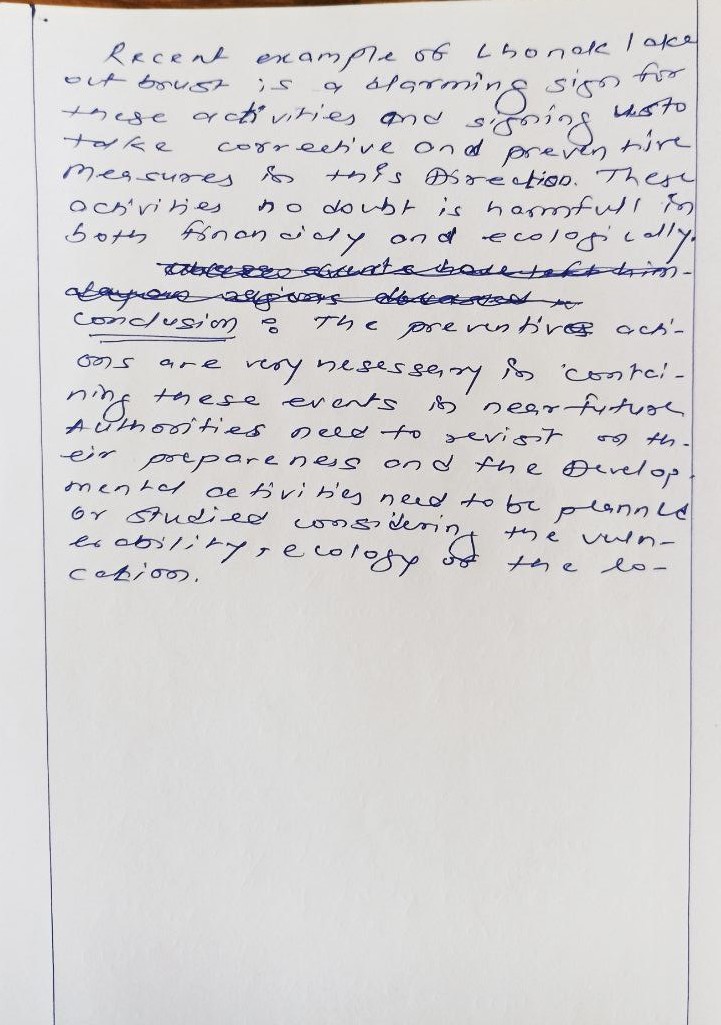 Recent example of Lhonak lake
out brust is a alarming sign for
these activities and signing us to
take corrective and preventive
measures in this Direction. These
activities no doubt is harmfull in
both financialy and ecologically.
conclusion : The preventive acti-
ons are very nesessary in contai-
ning these events in near future
Authorities need to revisit on th-
eir prepareness and the Develop-
mental activities need to be planned
or studied considering the vuln-
erability, ecology of the lo-
cation.